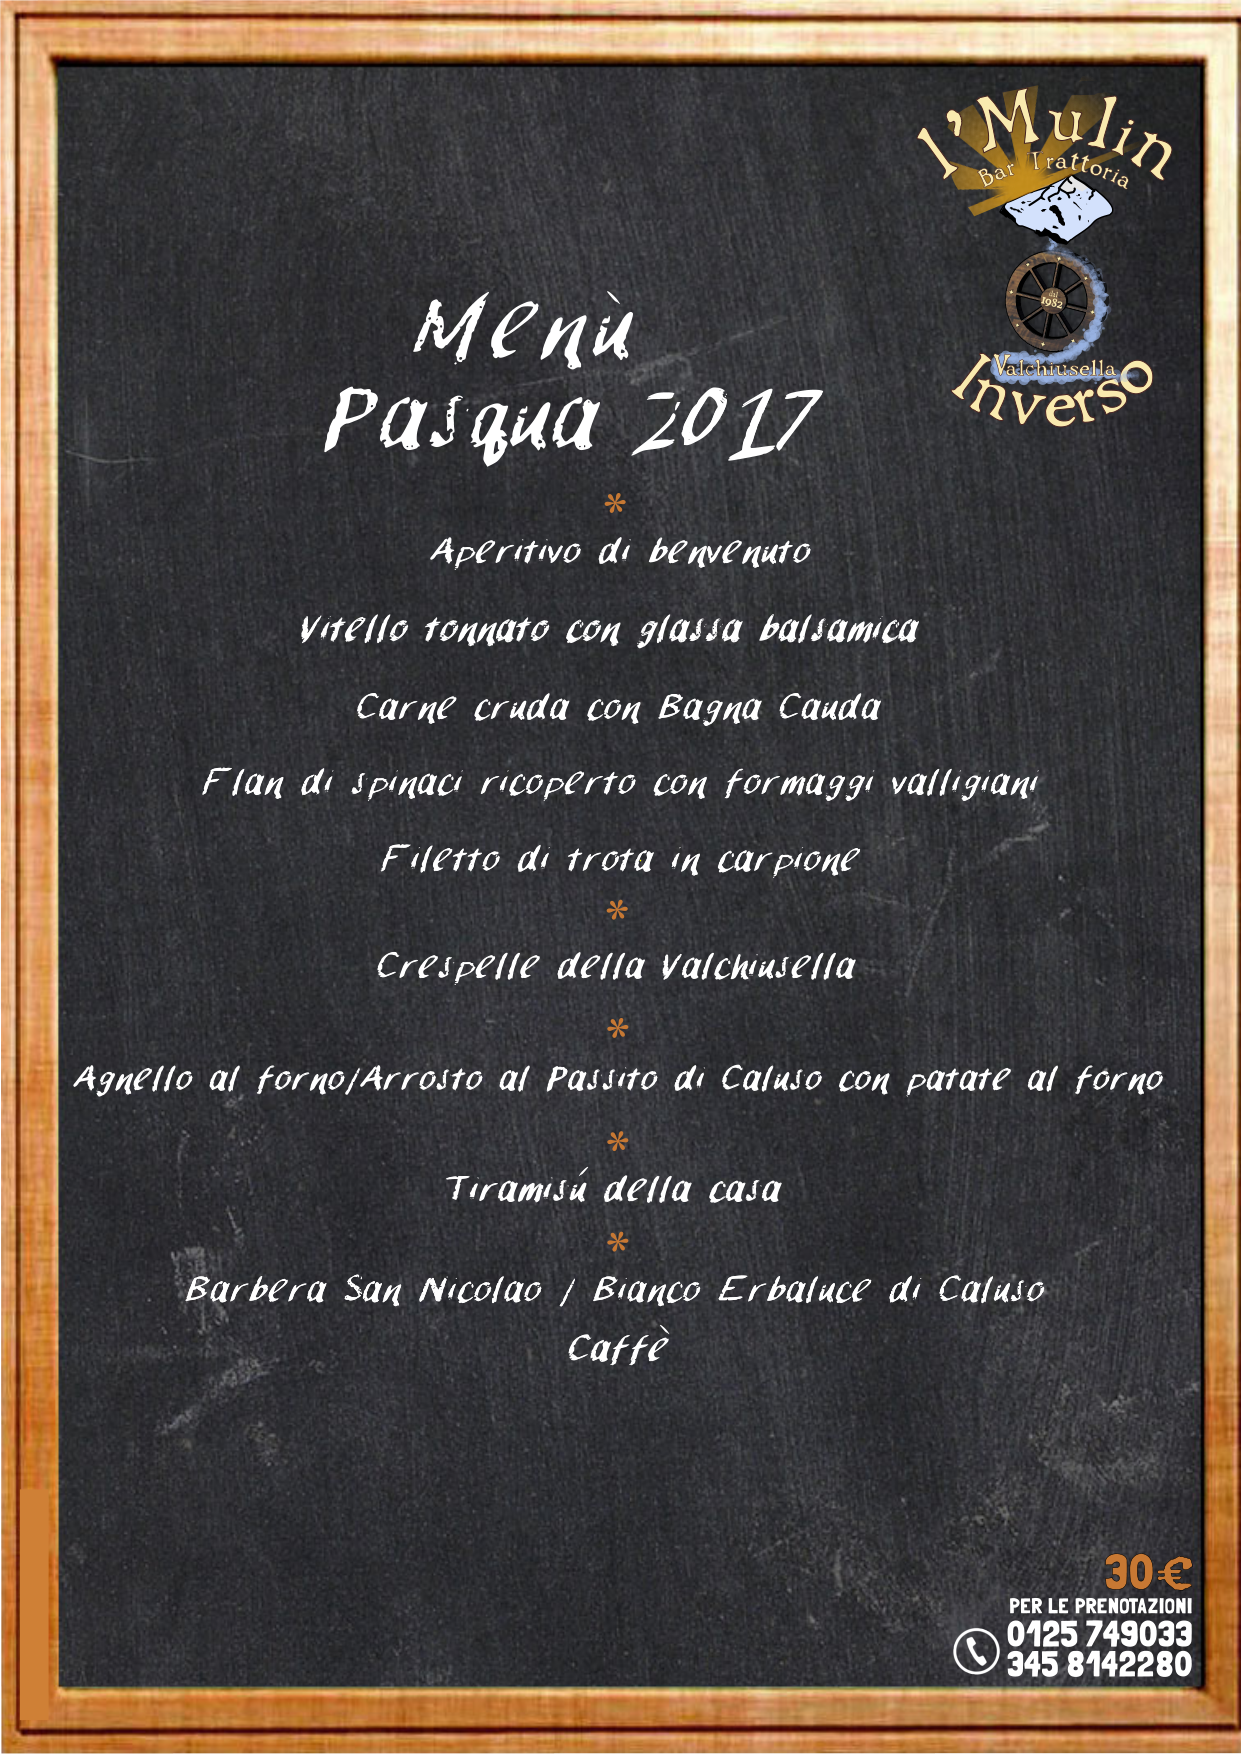 l'Mulin
Bar Trattoria
dal
1982
Valchiusella
Inverso
Menù
Pasqua 2017
*
Aperitivo di benvenuto
Vitello tonnato con glassa balsamica
Carne cruda con Bagna Cauda
Flan di spinaci ricoperto con formaggi valligiani
Filetto di trota in carpione
*
Crespelle della Valchiusella
*
Agnello al forno/Arrosto al Passito di Caluso con patate al forno
*
Tiramisú della casa
*
Barbera San Nicolao / Bianco Erbaluce di Caluso
Caffè
30€
PER LE PRENOTAZIONI
0125 749033
345 8142280